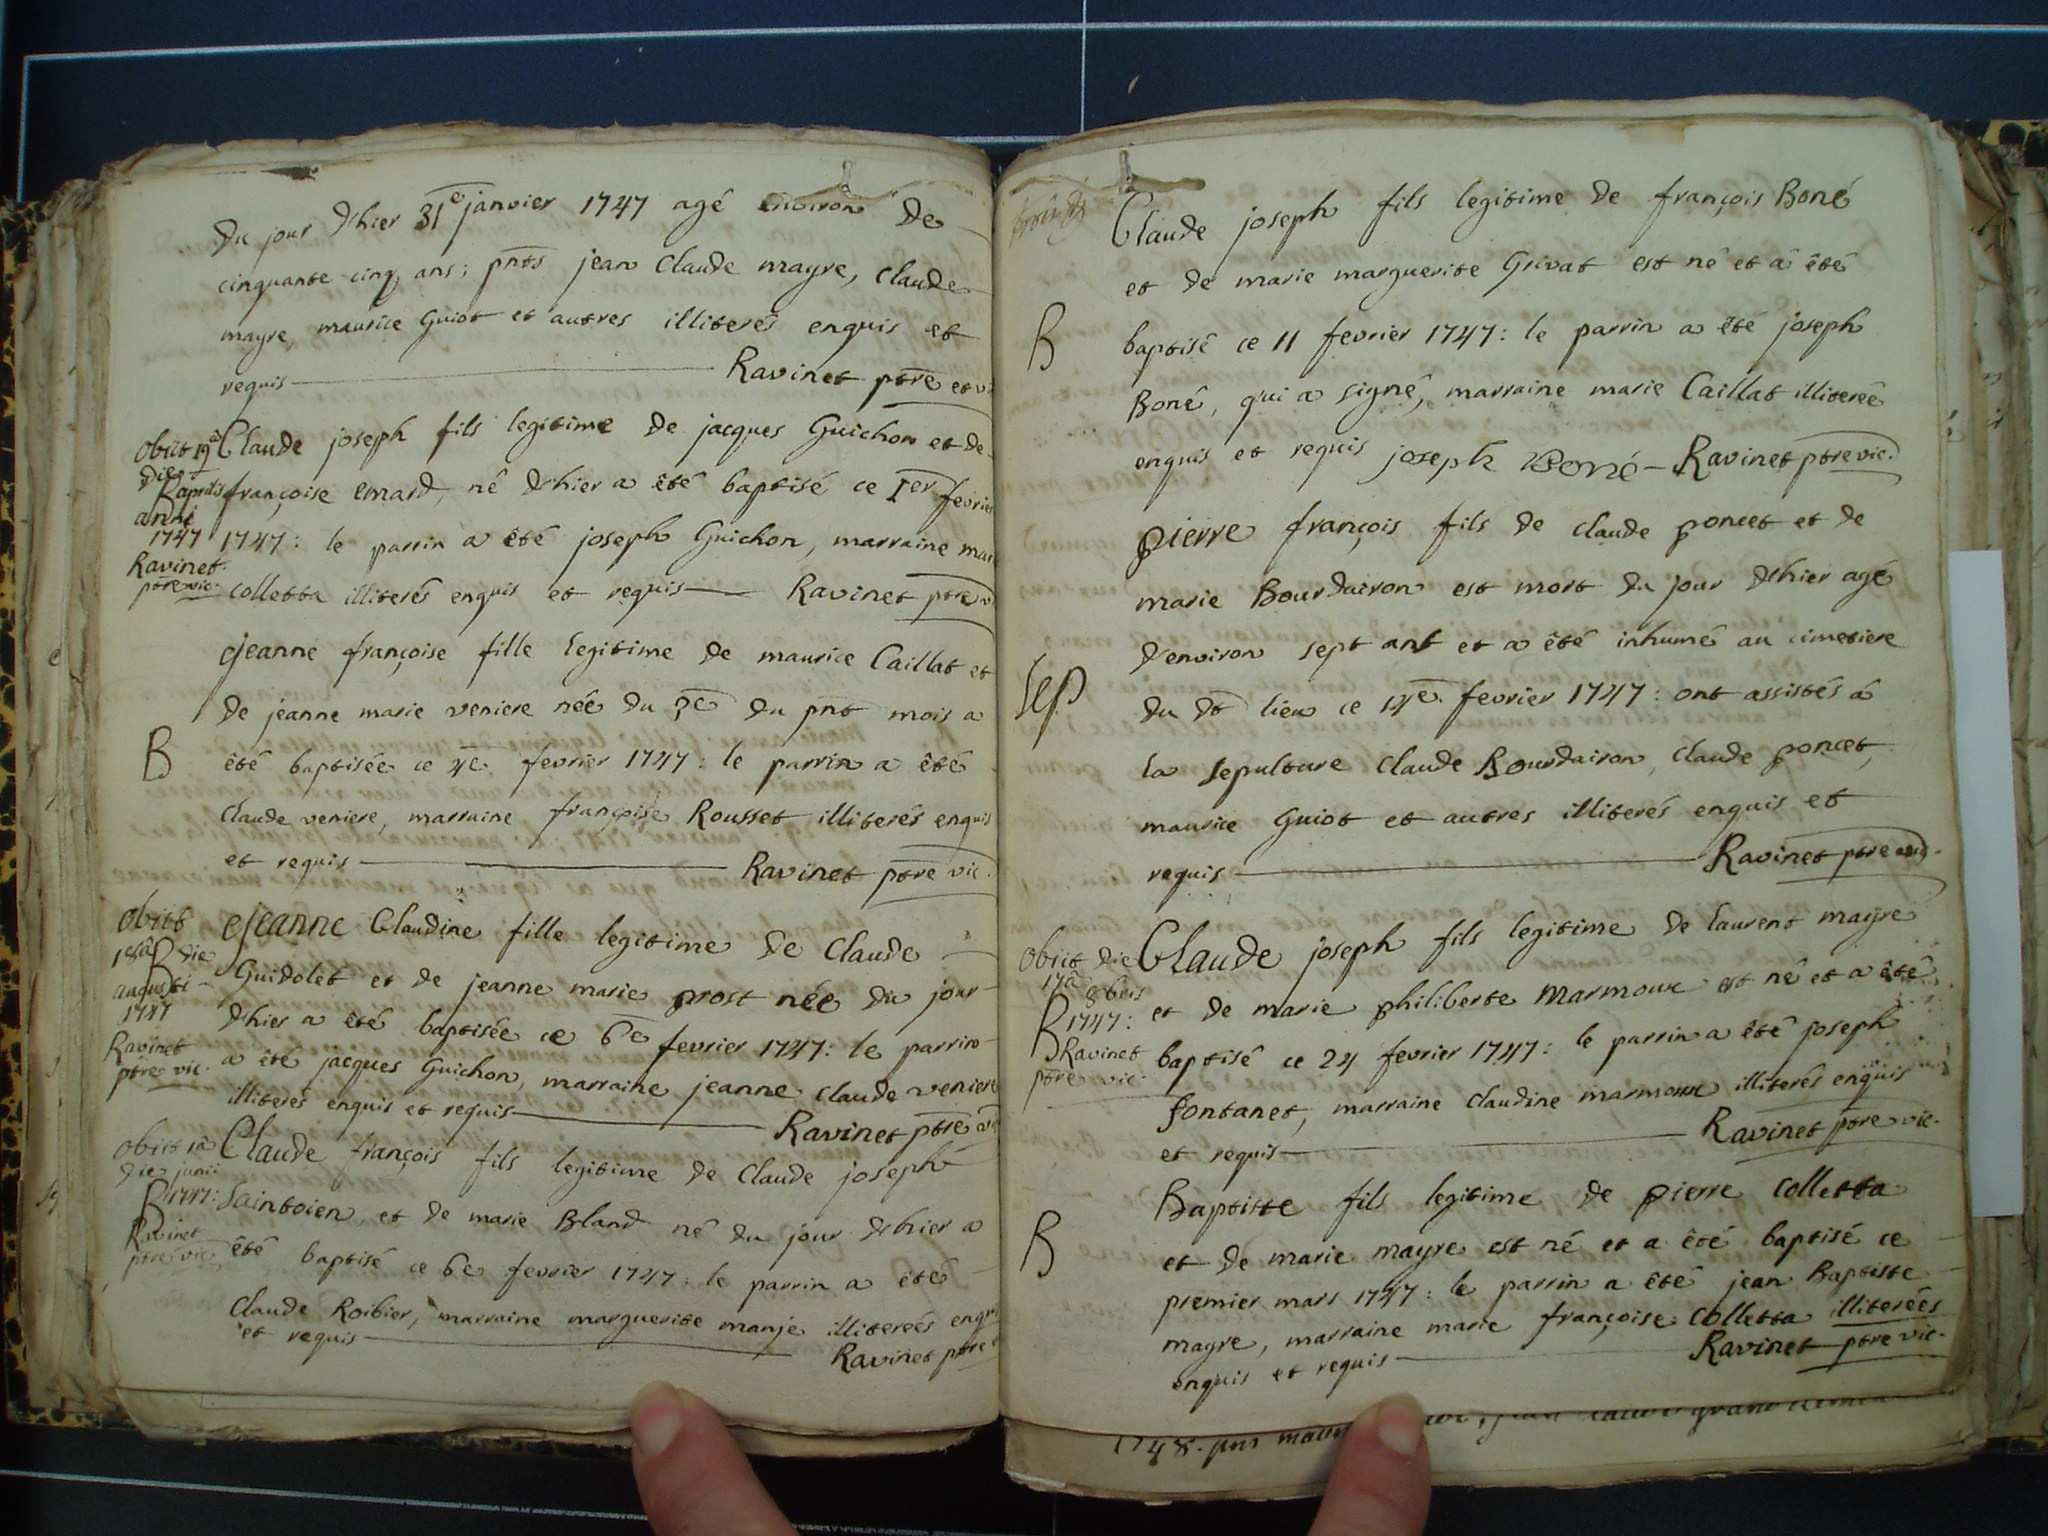 du jour d'hier 31e janvier 1747 agé environ de
cinquante cinq ans; pnts jean Claude mayre, Claude
mayre, maurice Guiot et autres illiterés enquis et
requis Ravinet ptre et vi
obiit 19a
die
aprilis
anni
1747
Ravinet
ptre vic.
Claude joseph fils legitime de jacques Guichon et de
françoise emard, né d'hier a êté baptisé ce Ier fevrier
1747: le parrin a êté joseph Guichon, marraine mar
colletta illiterés enquis et requis Ravinet ptre v
jeanne françoise fille legitime de maurice Caillat et
de jeanne marie veniere née du 3e du pnt mois a
B
êté baptisée ce 4e fevrier 1747: le parrin a êté
Claude veniere, marraine françoise Rousset illiterés enquis
et requis Ravinet ptre vic.
obiit
18a
B die
augusti
1747
Ravinet
ptre vic.
jeanne Claudine fille legitime de Claude
Guidolet et de jeanne marie prost née du jour
d'hier a êté baptisée ce 6e fevrier 1747: le parrin
a êté jacques Guichon, marraine jeanne claude veniere
illiterés enquis et requis Ravinet ptre
obiit 1a
die junii
B 1747:
Ravinet
ptre vic.
Claude françois fils legitime de Claude joseph
Saintoien, et de marie Bland né du jour d'hier a
êté baptisé ce 6e fevrier 1747: le parrin a êté
Claude Roibier, marraine marguerite manje illiterés enqu
et requis Ravinet ptre
Claude joseph fils legitime de françois Boné
et de marie marguerite Grivat est né et a êté
B
baptisé ce 11 fevrier 1747: le parrin a êté joseph
Boné, qui a signé, marraine marie Caillat illiterée
enquis et requis joseph Boné - Ravinet ptre vic.
pierre françois fils de claude poncet et de
marie Bourdairon est mort du jour d'hier agé
d'environ sept ans et a êté inhumé au cimetiere
Sep
du dt lieu ce 14e. fevrier 1747: ont assistés á
la sepulture Claude Bourdairon, Claude poncet,
maurice Guiot et autres illiterés enquis et
requis Ravinet ptre vic.
obiit die
17a 8bris
B 1747:
Ravinet
ptre vic.
Claude joseph fils legitime de laurent mayre
et de marie philiberte marmoux est né et a êté
baptisé ce 24 fevrier 1747: le parrin a êté joseph
fontanet, marraine claudine marmoux illiterés enquis
et requis Ravinet ptre vic.
Baptiste fils legitime de pierre colletta
B
et de marie mayre est né et a êté baptisé ce
premier mars 1747: le parrin a êté jean Baptiste
mayre, marraine marie françoise colletta illiterées
enquis et requis Ravinet ptre vic.
1748. pns